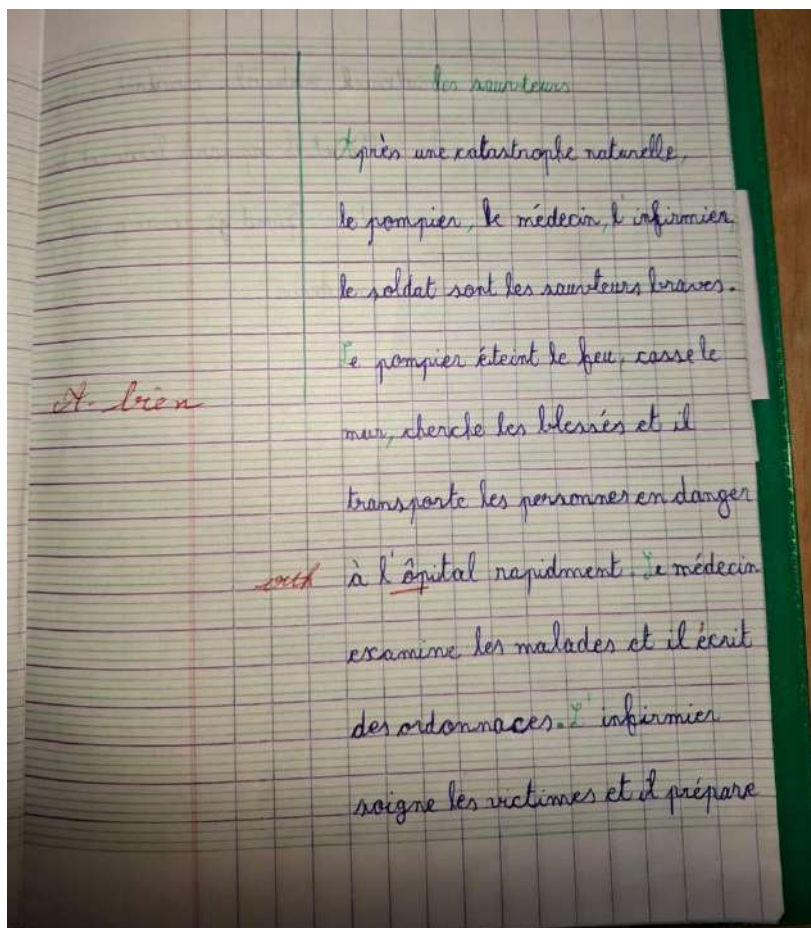 les sauveteurs
Après une catastrophe naturelle,
le pompier, le médecin, l'infirmier
le soldat sont les sauveteurs braves.
Le pompier éteint le feu, casse le
A. bien
mur, cherche les blessés et il
transporte les personnes en danger
orth à l'ôpital rapidment. Le médecin
examine les malades et il écrit
des ordonnaces. L'infirmier
soigne les victimes et il prépare